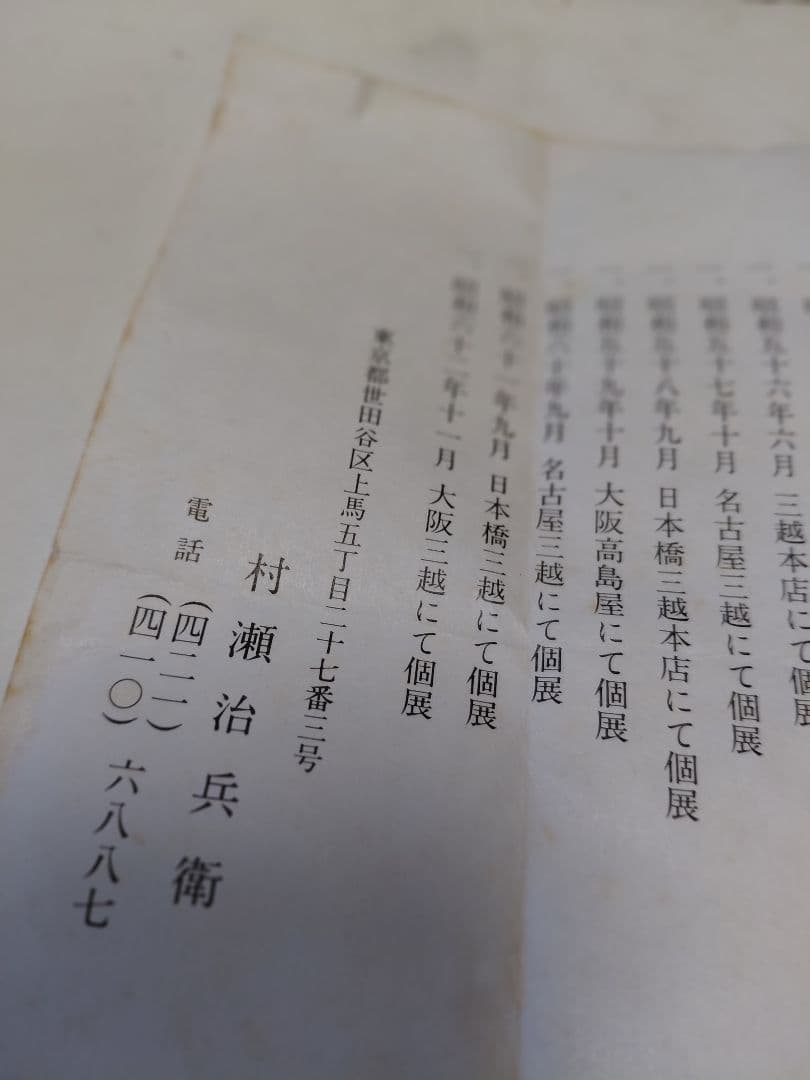 一、昭和五十六年六月 三越本店にて個展
一、昭和五十七年十月 名古屋三越にて個展
一、昭和五十八年九月 日本橋三越本店にて個展
一、昭和五十九年十月 大阪高島屋にて個展
一、昭和六十年九月 名古屋三越にて個展
一、昭和六十一年九月 日本橋三越にて個展
一、昭和六十二年十一月 大阪三越にて個展
東京都世田谷区上馬五丁目二十七番三号
村瀬治兵衛
電話 (四二一)
(四一〇) 六八八七